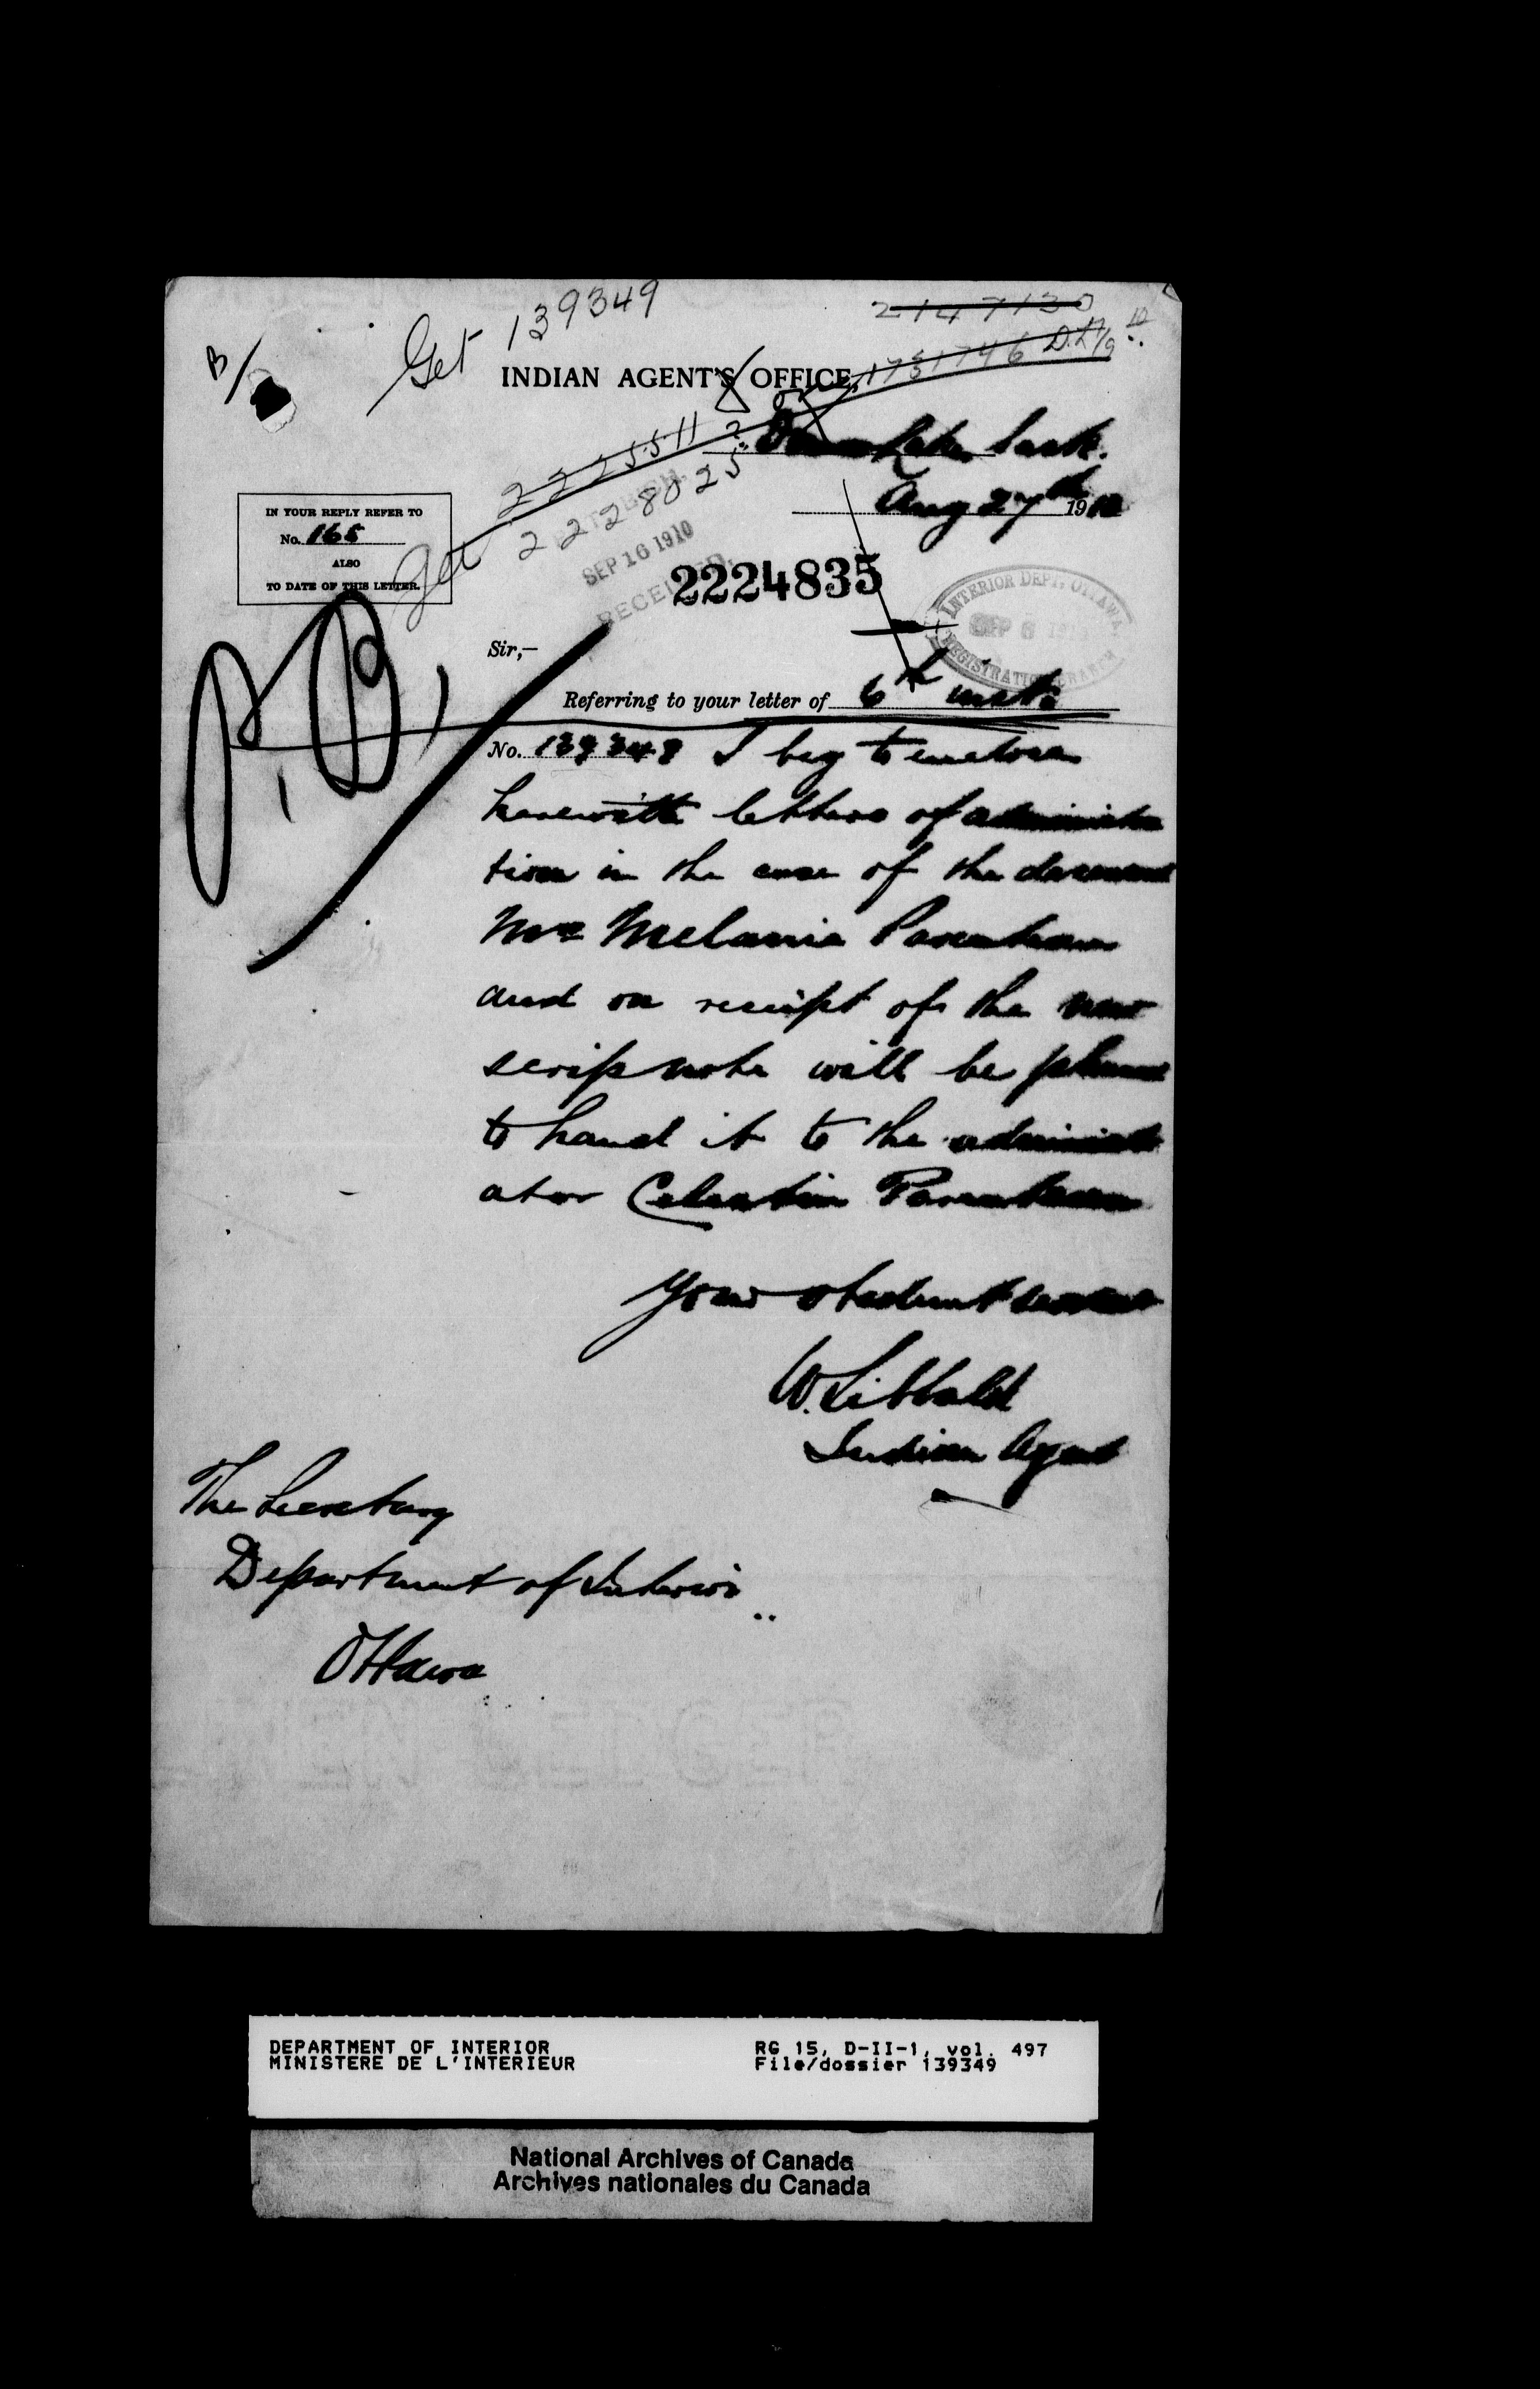 Get 139349
2147130
B/
INDIAN AGENT'S OFFICE,
1731746 D.L. 17/9 10
2225511
Lake Sask.
Get 2228025
Aug 27th 1910
IN YOUR REPLY REFER TO
No. 165
ALSO
TO DATE OF THIS LETTER.
SEP 16 1910
RECEIVED.
2224835
INTERIOR DEPT. OTTAWA
SEP 6 1910
REGISTRATION BRANCH
P. B,
Sir,—
Referring to your letter of 6th inst.
No. 139349 I beg to enclose
herewith letters of administra
tion in the case of the deceased
Mrs Melanie Parenteau
and on receipt of the new
scrip note will be pleased
to hand it to the administr
ator Celestin Parenteau
Your obedient servant
W. Sibbald
Indian Agent
The Secretary
Department of Interior
Ottawa
DEPARTMENT OF INTERIOR
MINISTERE DE L'INTERIEUR
RG 15, D-II-1, vol. 497
File/dossier 139349
National Archives of Canada
Archives nationales du Canada